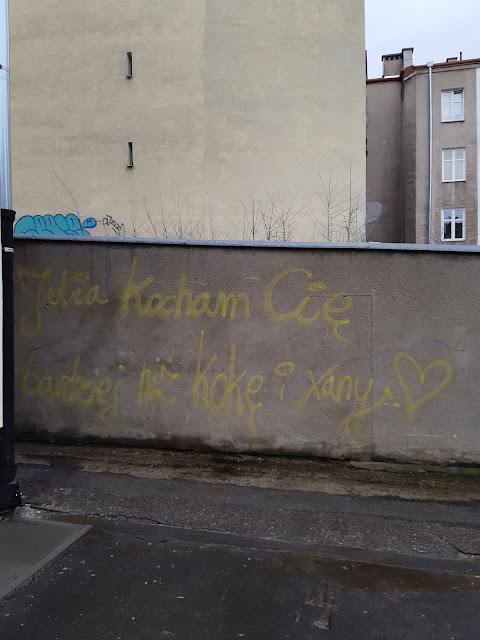 Julia Kocham Cię
bardziej niż Kokę i xany